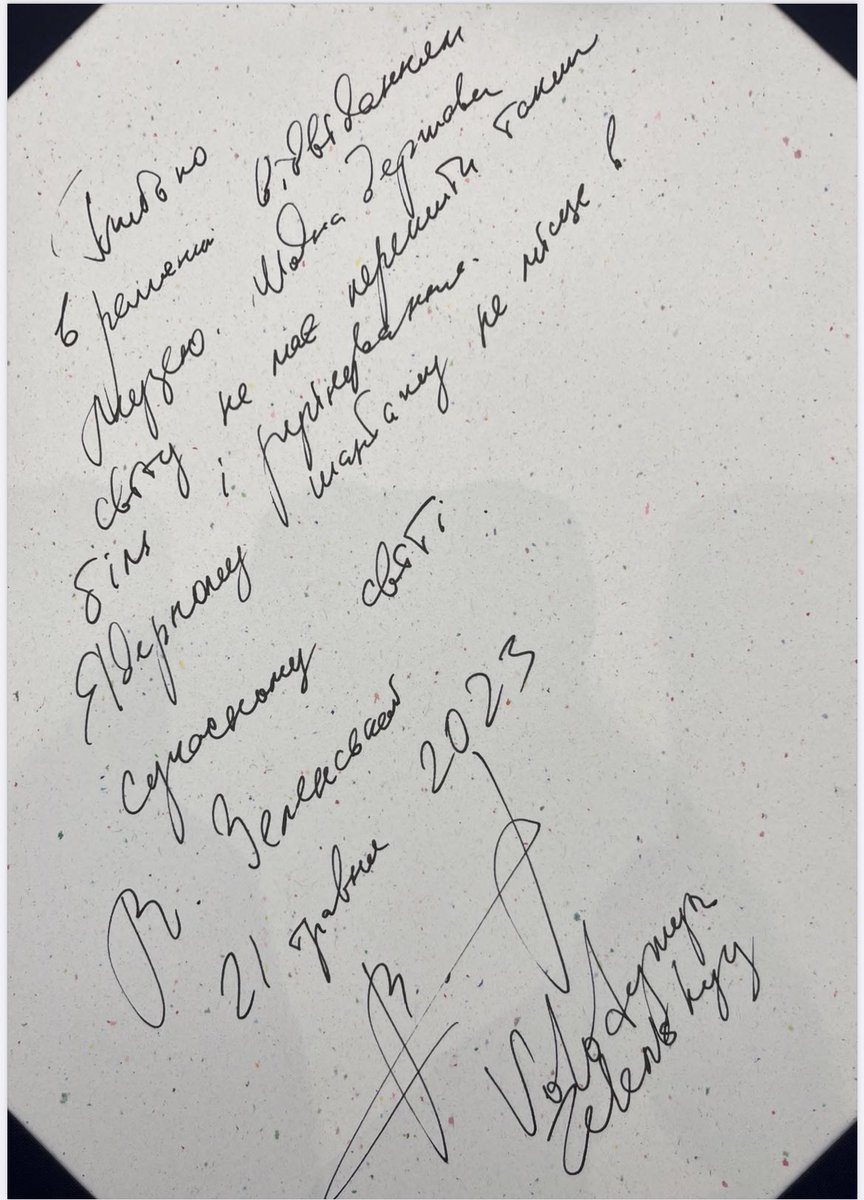 Глибоко
вражений відвіданням
Музею. Жодна держава
світу не має пережити такий
біль і руйнування.
Ядерному шантажу не місце в
сучасному світі
В. Зеленський
21 травня 2023
Volodymyr
Zelenskyy